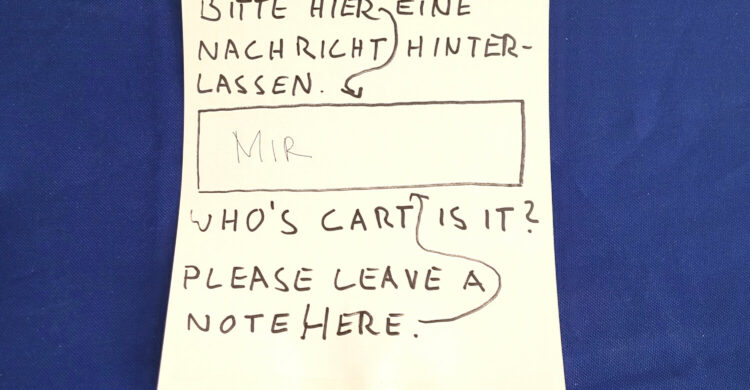 BITTE HIER EINE
NACHRICHT HINTER-
LASSEN.
MIR
WHO'S CART IS IT?
PLEASE LEAVE A
NOTE HERE.